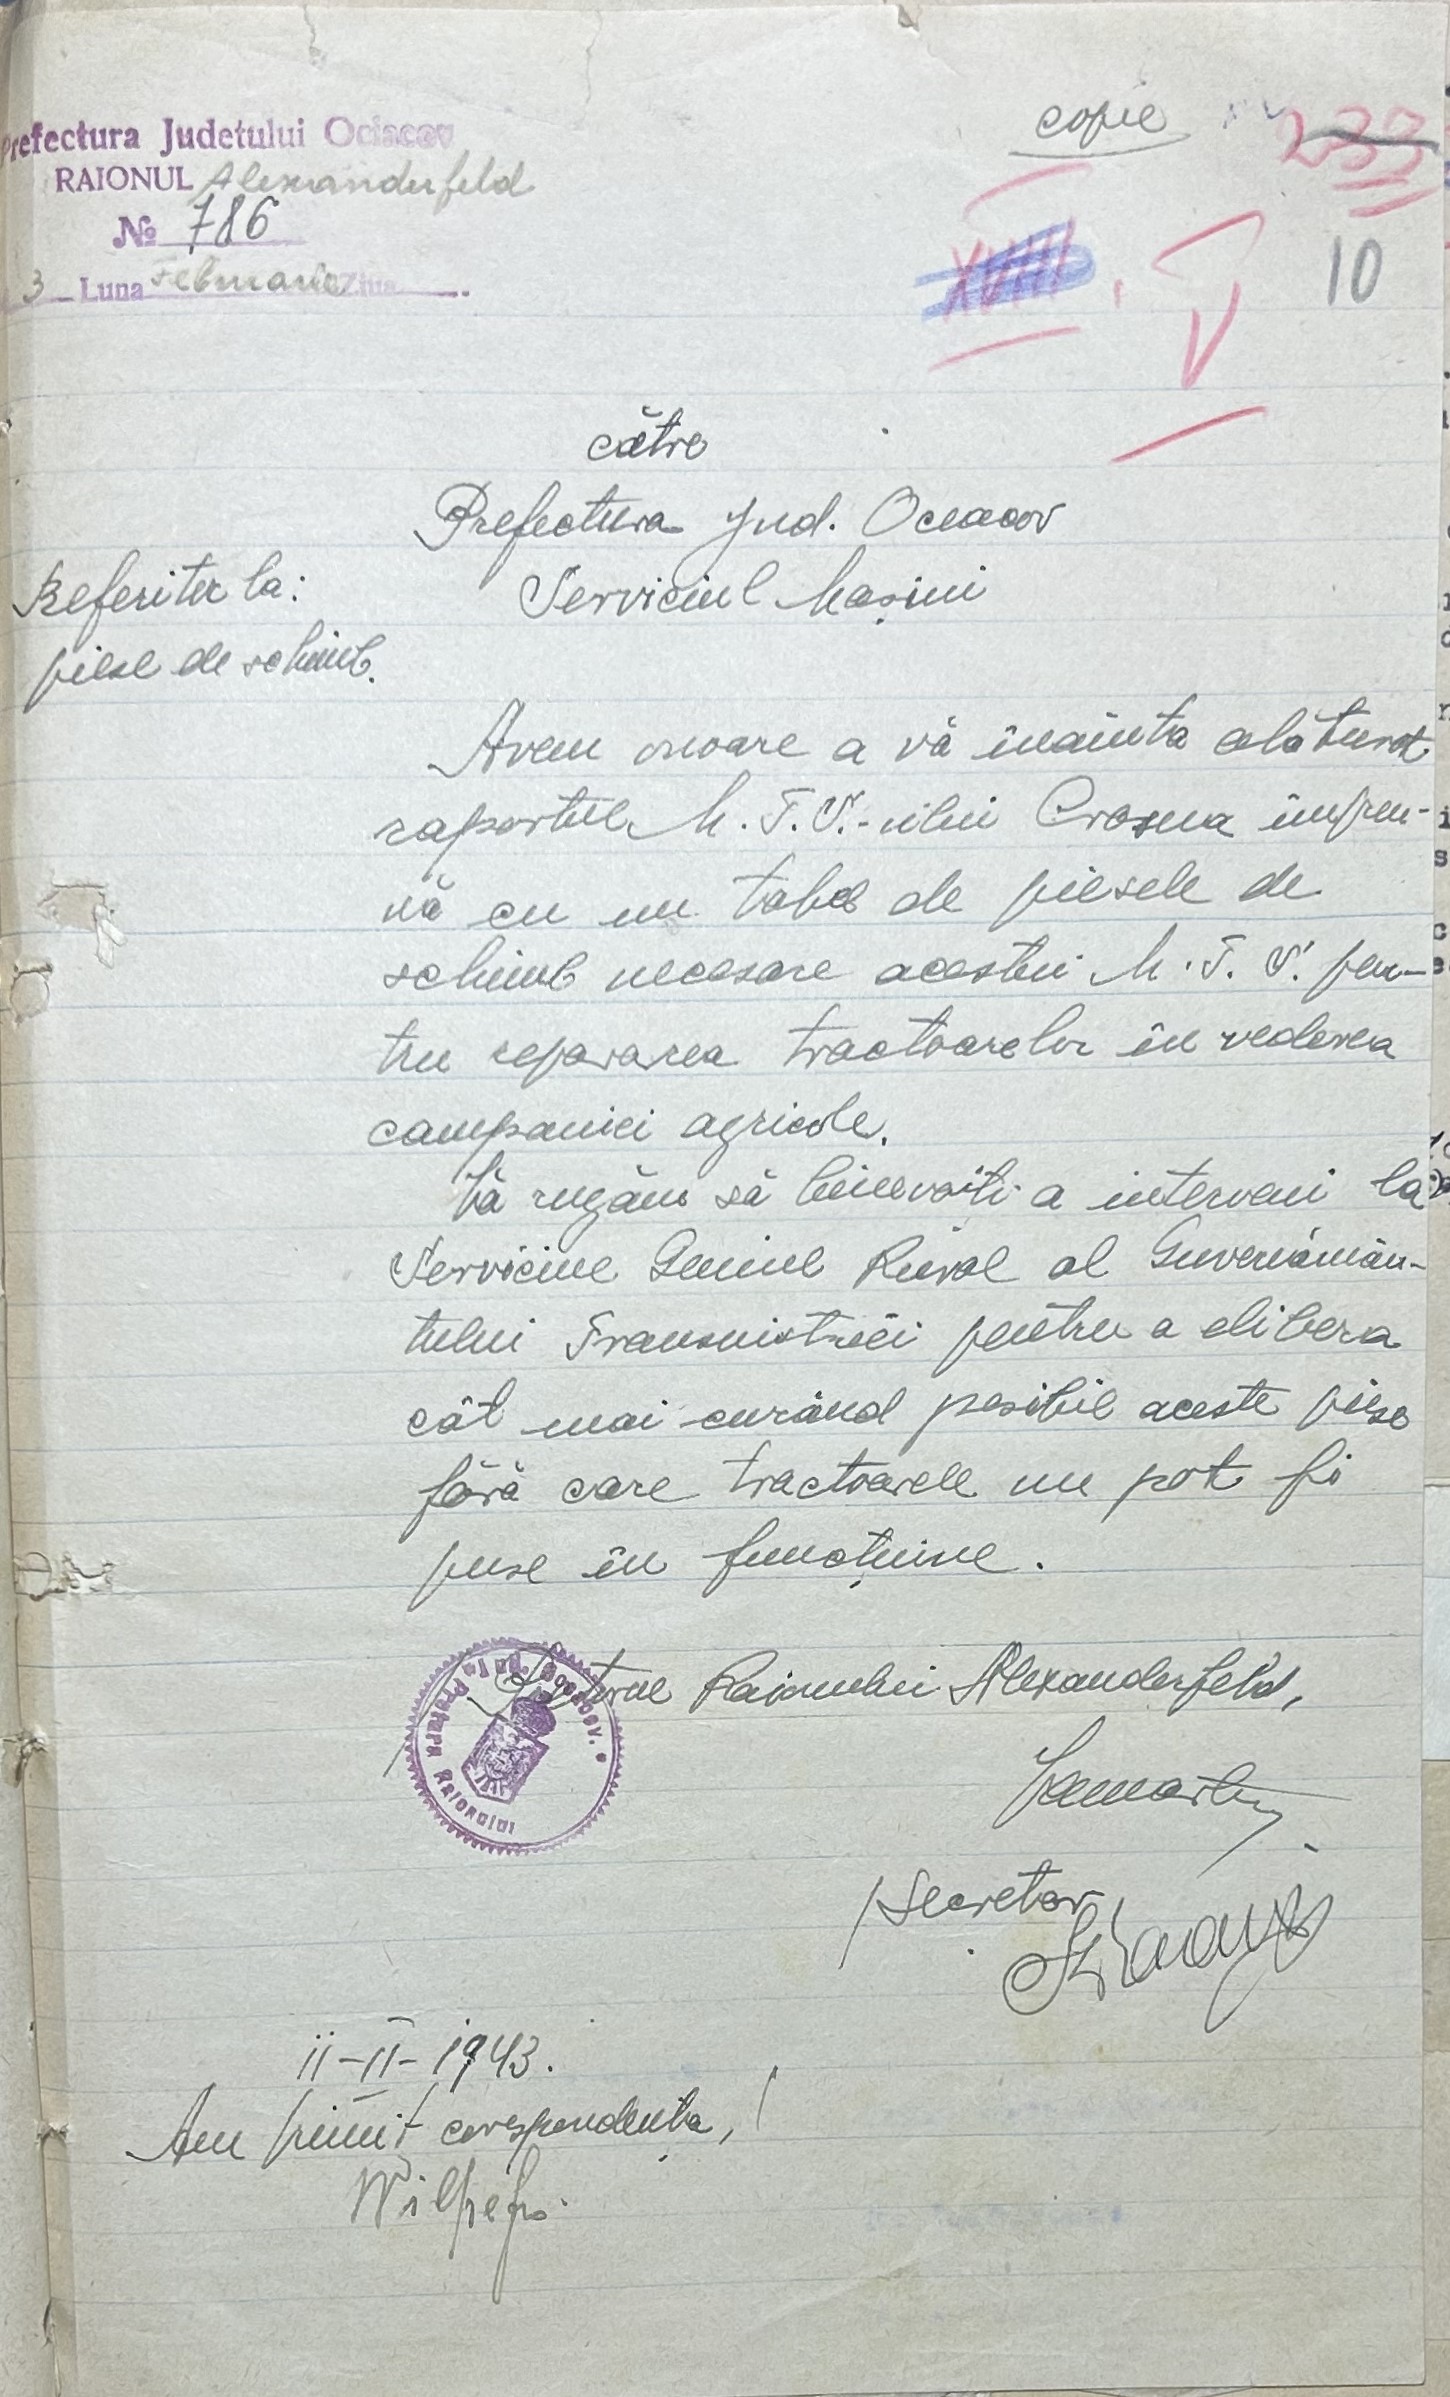 copie
233
Prefectura Judetului Ociacov
RAIONUL Alexanderfeld
№ 786
3 Luna Februarie Ziua
XVIII
V
10
către
Prefectura Jud. Oceacov
Serviciul Mașini
Referitor la:
piese de schimb.
Avem onoare a vă înainta alăturat
raportul M.T.S.-ului Crasna împreu-
nă cu un tabel de piesele de
schimb necesare acestui M.T.S. pen-
tru repararea tractoarelor în vederea
campaniei agricole.
Vă rugăm să binevoiți a interveni la
Serviciul Geniul Rural al Guvernămân-
tului Transnistriei pentru a elibera
cât mai curând posibil aceste piese
fără care tractoarele nu pot fi
puse în funcțiune.
Pretorul Raionului Alexanderfeld,
Secretar
11-II-1943.
Am primit corespondența,